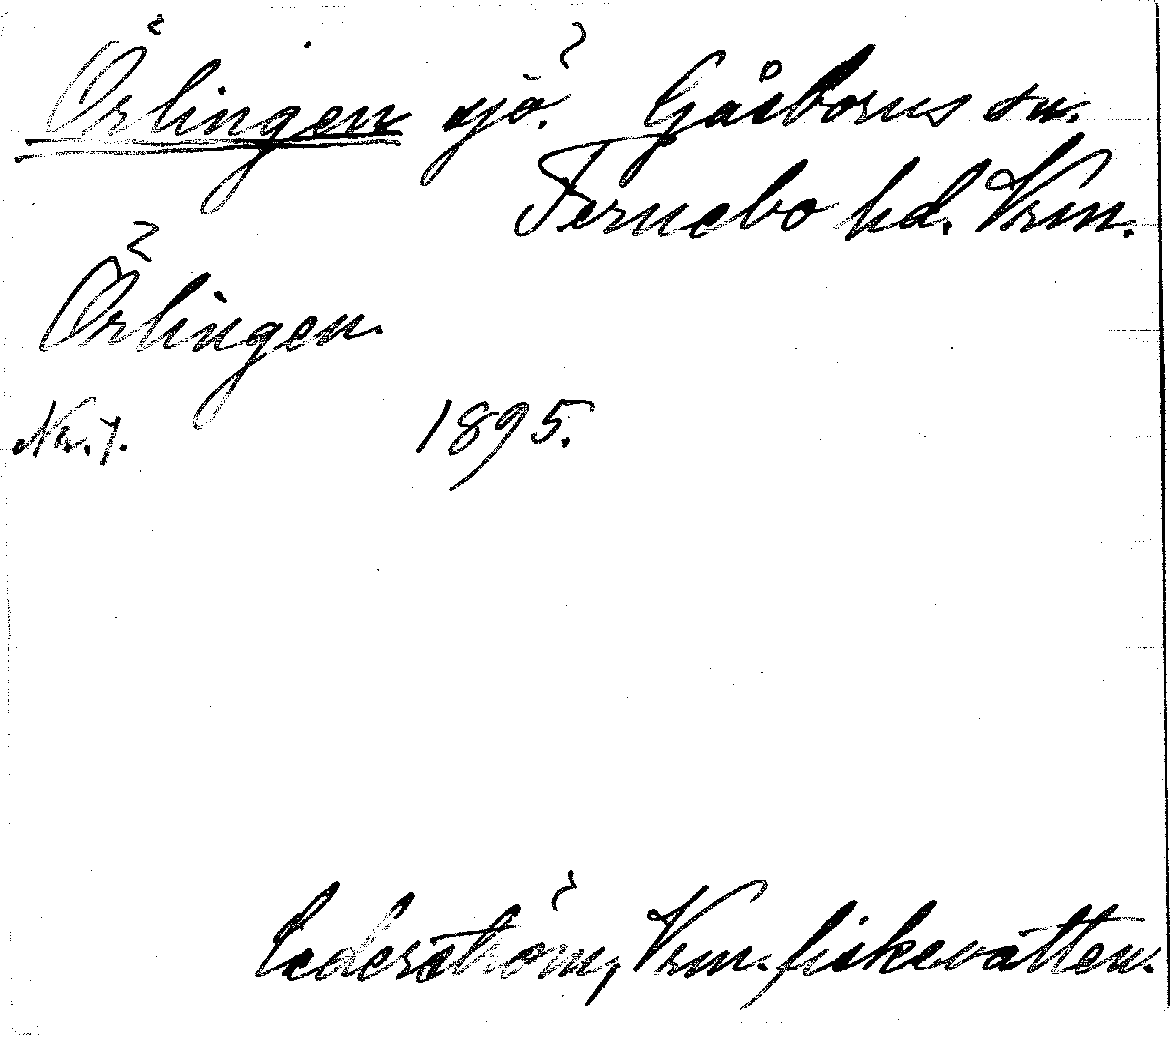 Örlingen sjö. Gåsborns sn.
Fernebo hd. Vrm.
Örlingen.
Nr. 7. 1895.
Cederström, Vrm. fiskevatten.